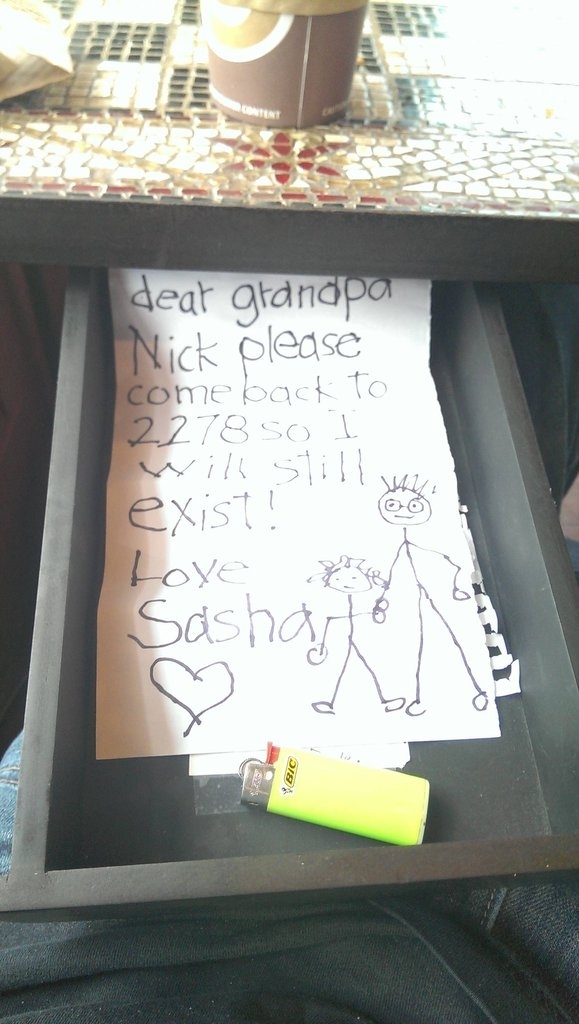 CONTENT
dear grandpa
Nick please
come back to
2278 so I
will still
exist!
Love
Sasha
BIC